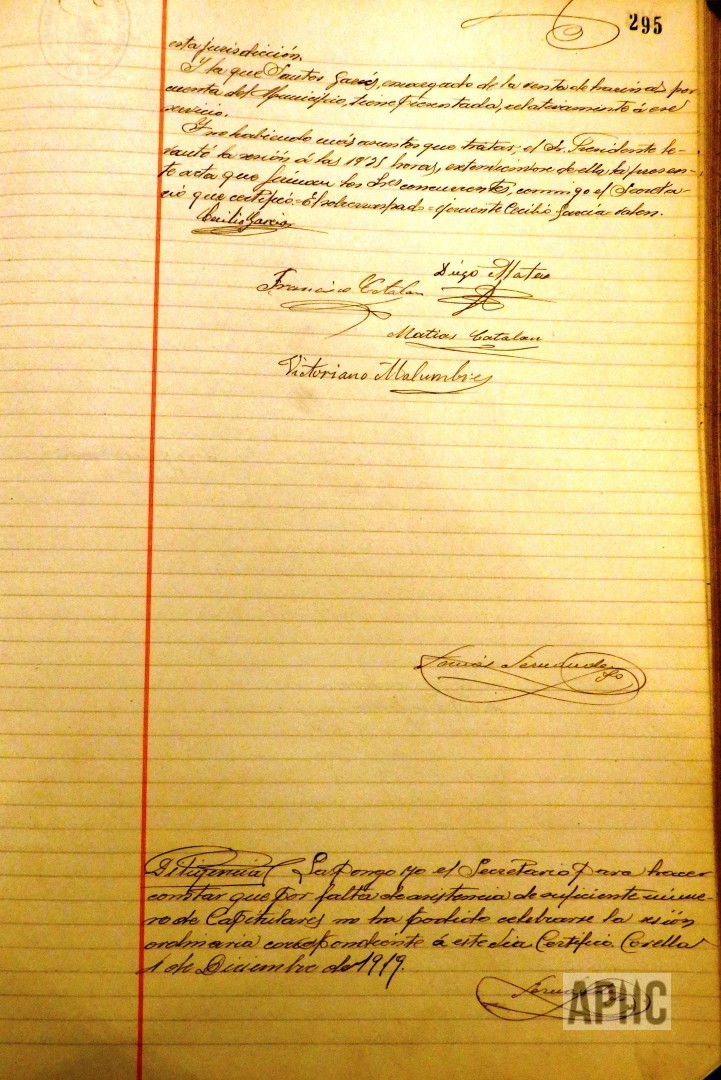 295
esta jurisdicción.
Y la que Santos Garcés, encargado de la venta de harinas por
cuenta del Municipio, tiene presentada, relativamente á ese
servicio.
Y no habiendo más asuntos que tratar, el Sr. Presidente le-
vantó la sesión á las 18'25 horas, extendiéndose de ella la presen-
te acta que firman los Sres concurrentes, conmigo el Secreta-
rio que certifico = El sobrerraspado = Cecilio García = valen.
Cecilio Garcia
Diego Mateo
Francisco Catalan
Matias Catalan
Victoriano Malumbres
Tomás Fernández
Diligencia La pongo yo el Secretario para hacer
constar que por falta de asistencia de suficiente núme-
ro de Capitulares no ha podido celebrarse la sesión
ordinaria correspondiente á este dia Certifico. Corella
1 de Diciembre de 1919.
Fernández
APHC